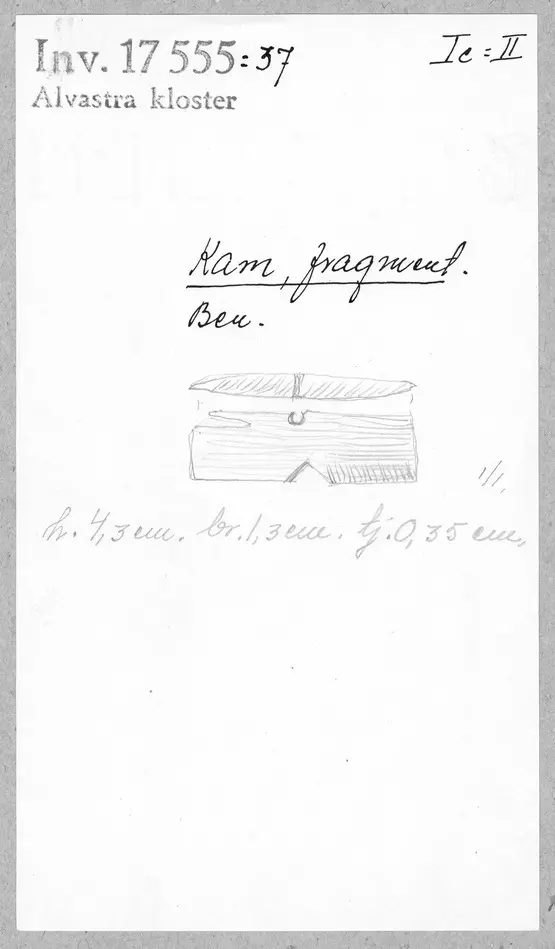 Inv. 17 555:37
Ic = II
Alvastra kloster
Kam, fragment.
Ben.
1/1.
h. 4,3 cm. br. 1,3 cm. tj. 0,35 cm.